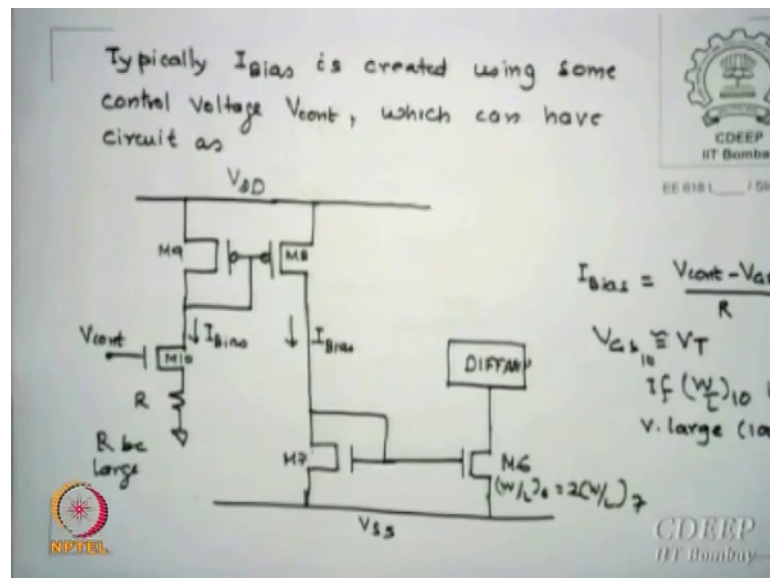 Typically IBias is created using some
control voltage Vcont, which can have
circuit as
CDEEP
IIT Bomba
EE 618 L
VDD
M9
M8
Vcont
IBias
IBias
M10
R
R be
large
DIFFAMP
M7
M6
(W/L)6 = 2(W/L)7
VSS
IBias = Vcont - VGS
R
VGS10 ≅ VT
If (W/L)10
v. large (10
NPTEL
CDEEP
IIT Bombay